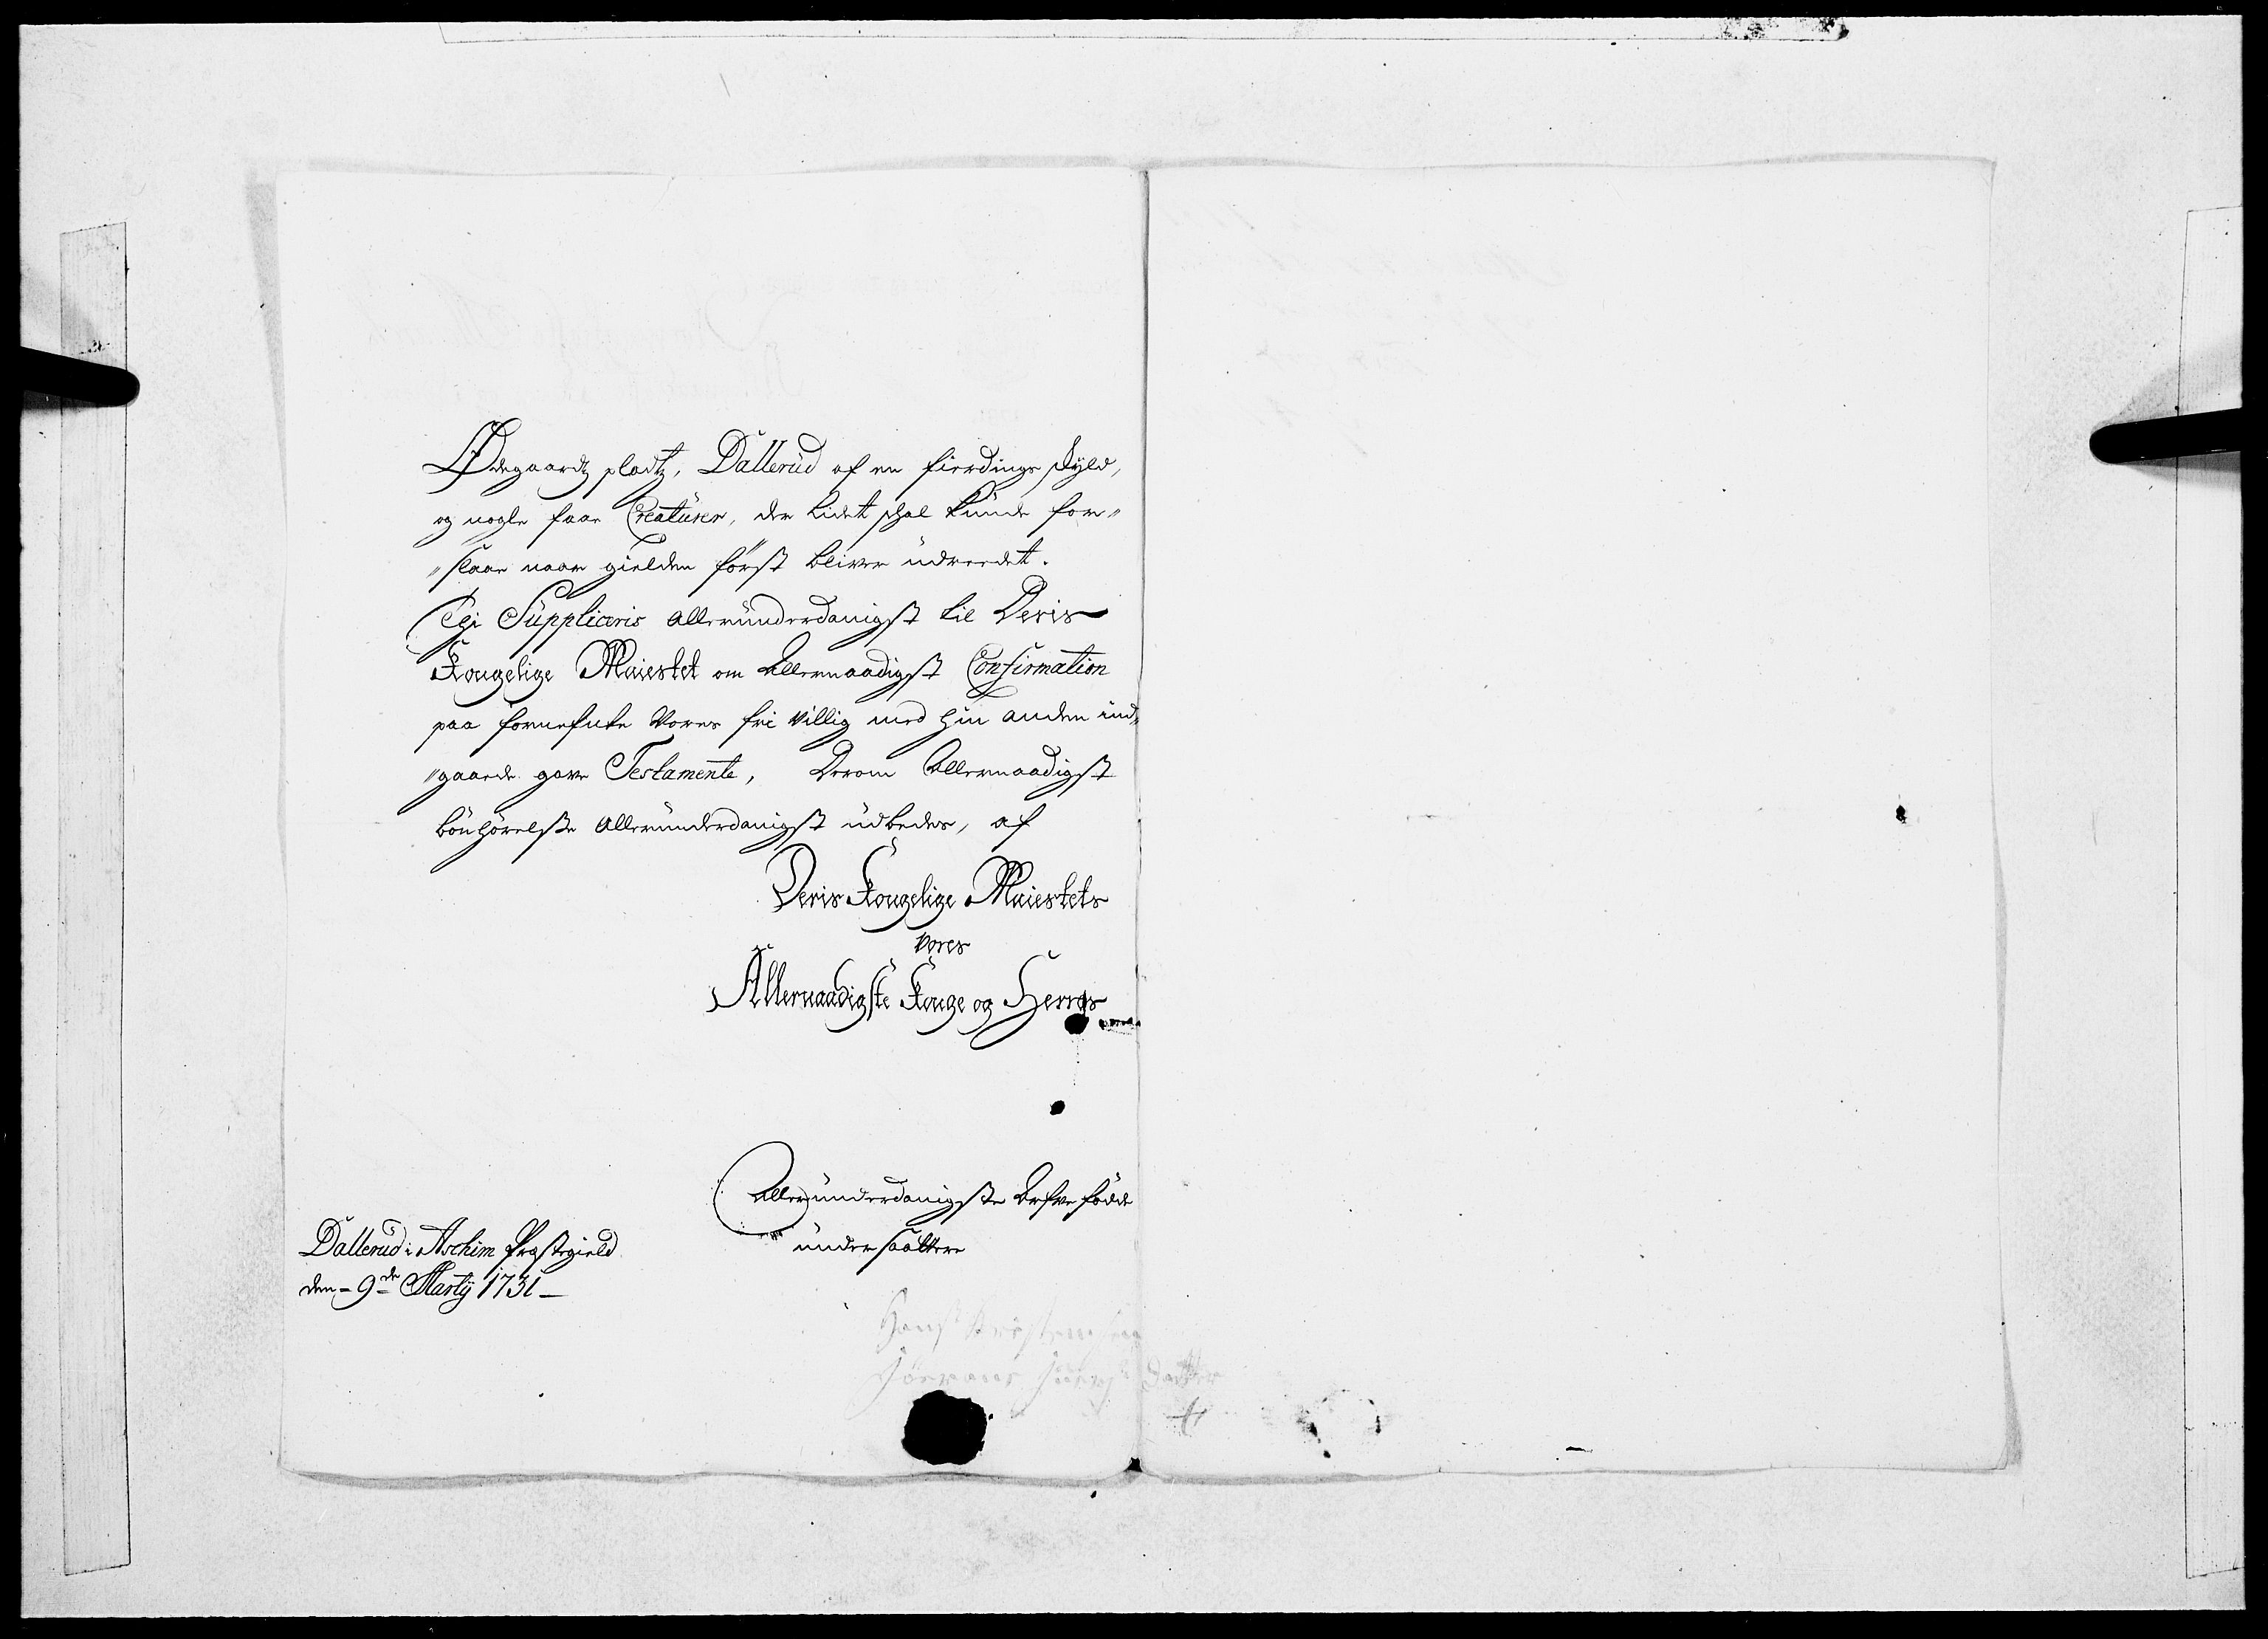 Ødegaardz pladtz, Dallerüd af en fierdings skyld,
og nogle faae Creatürer, der lidet skal künde for-
slaae naar gielden först bliver üdreedet.
Thi Süpliceris alleründerdanigst til Deris
Kongelige Maiestet om Allernaadigst Confirmation
paa fornefnte Vores fri villig med hin anden ind-
gaaede gave Testamente, Derom Allernaadigst
bönhörelse Alleründerdanigst üdbedes, af
Deris Kongelige Maiestets
vores
Allernaadigste Konge og Herres
Alleründerdanigste Arfve födde
ündersaattere
Dallerüd i Aschim Præstegield
den - 9de Martÿ 1731 -
Hans
Datter